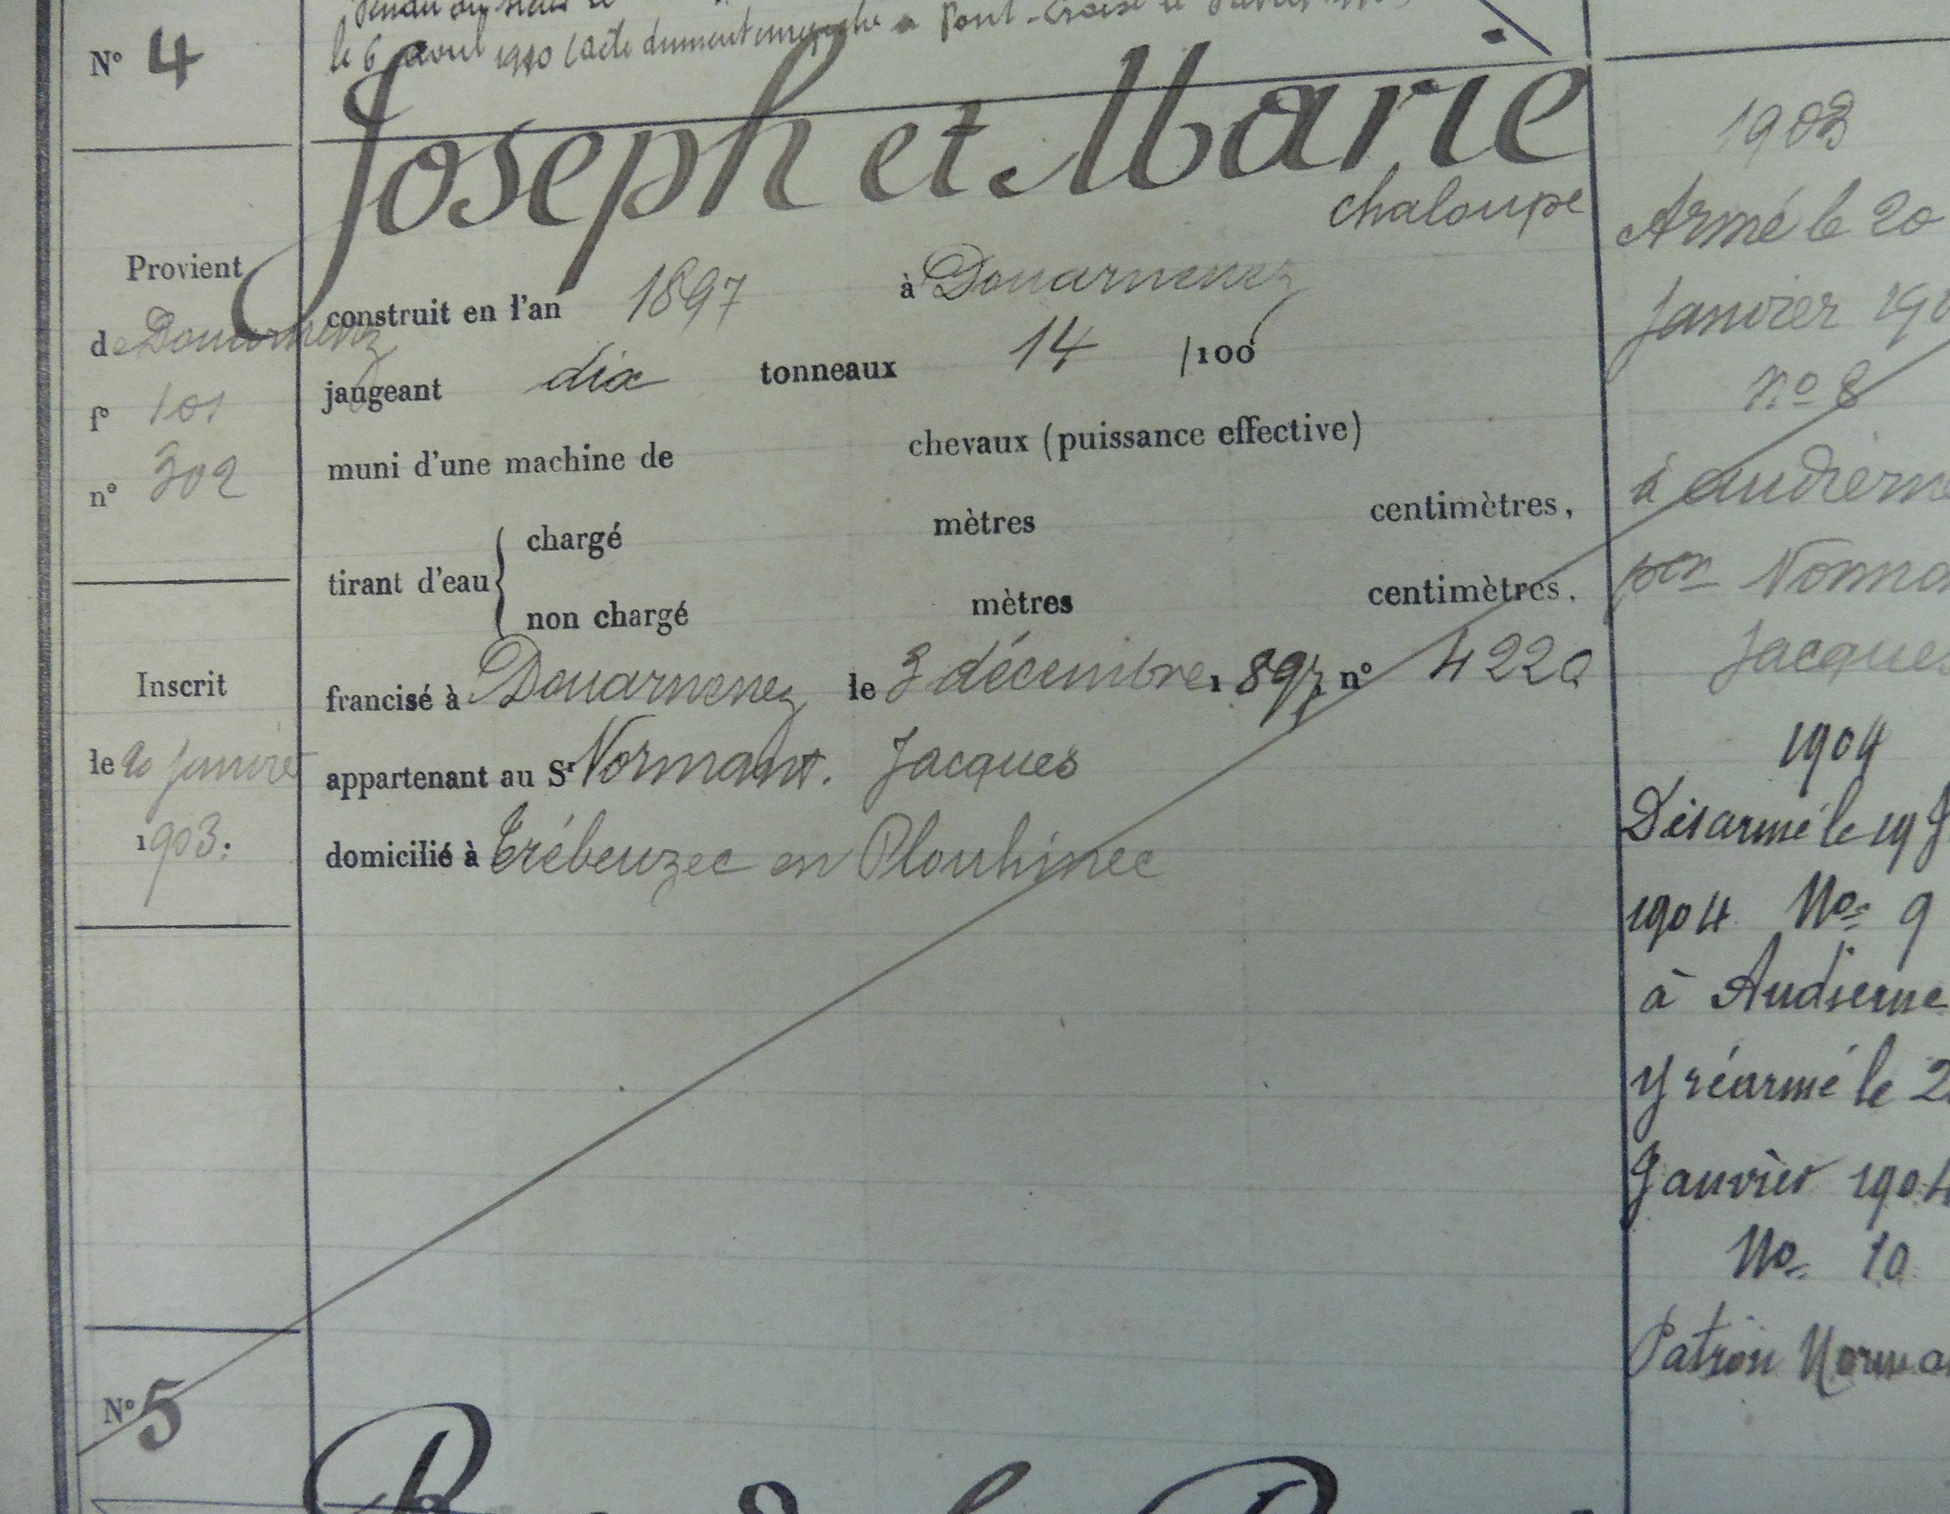 le 6 avril 1910 (acte dument enregistré à Pont-Croix le
N° 4
Joseph et Marie
chaloupe
Provient
de Douarnenez
f° 101
n° 302
construit en l'an 1897 à Douarnenez
jaugeant dix tonneaux 14 /100
muni d'une machine de chevaux (puissance effective)
tirant d'eau
chargé mètres centimètres,
non chargé mètres centimètres.
Inscrit
le 20 janvier
1903.
francisé à Douarnenez le 3 décembre 1897, n° 4220
appartenant au Sr Normant. Jacques
domicilié à Trébeuzec en Plouhinec
1903
Armé le 20
Janvier 190
n° 8
à audierne
pon Norma
Jacques
1904
Désarmé le 19 J
1904 No 9
à Audierne
y réarmé le 2
Janvier 1904
No 10
Patron Norma
N° 5